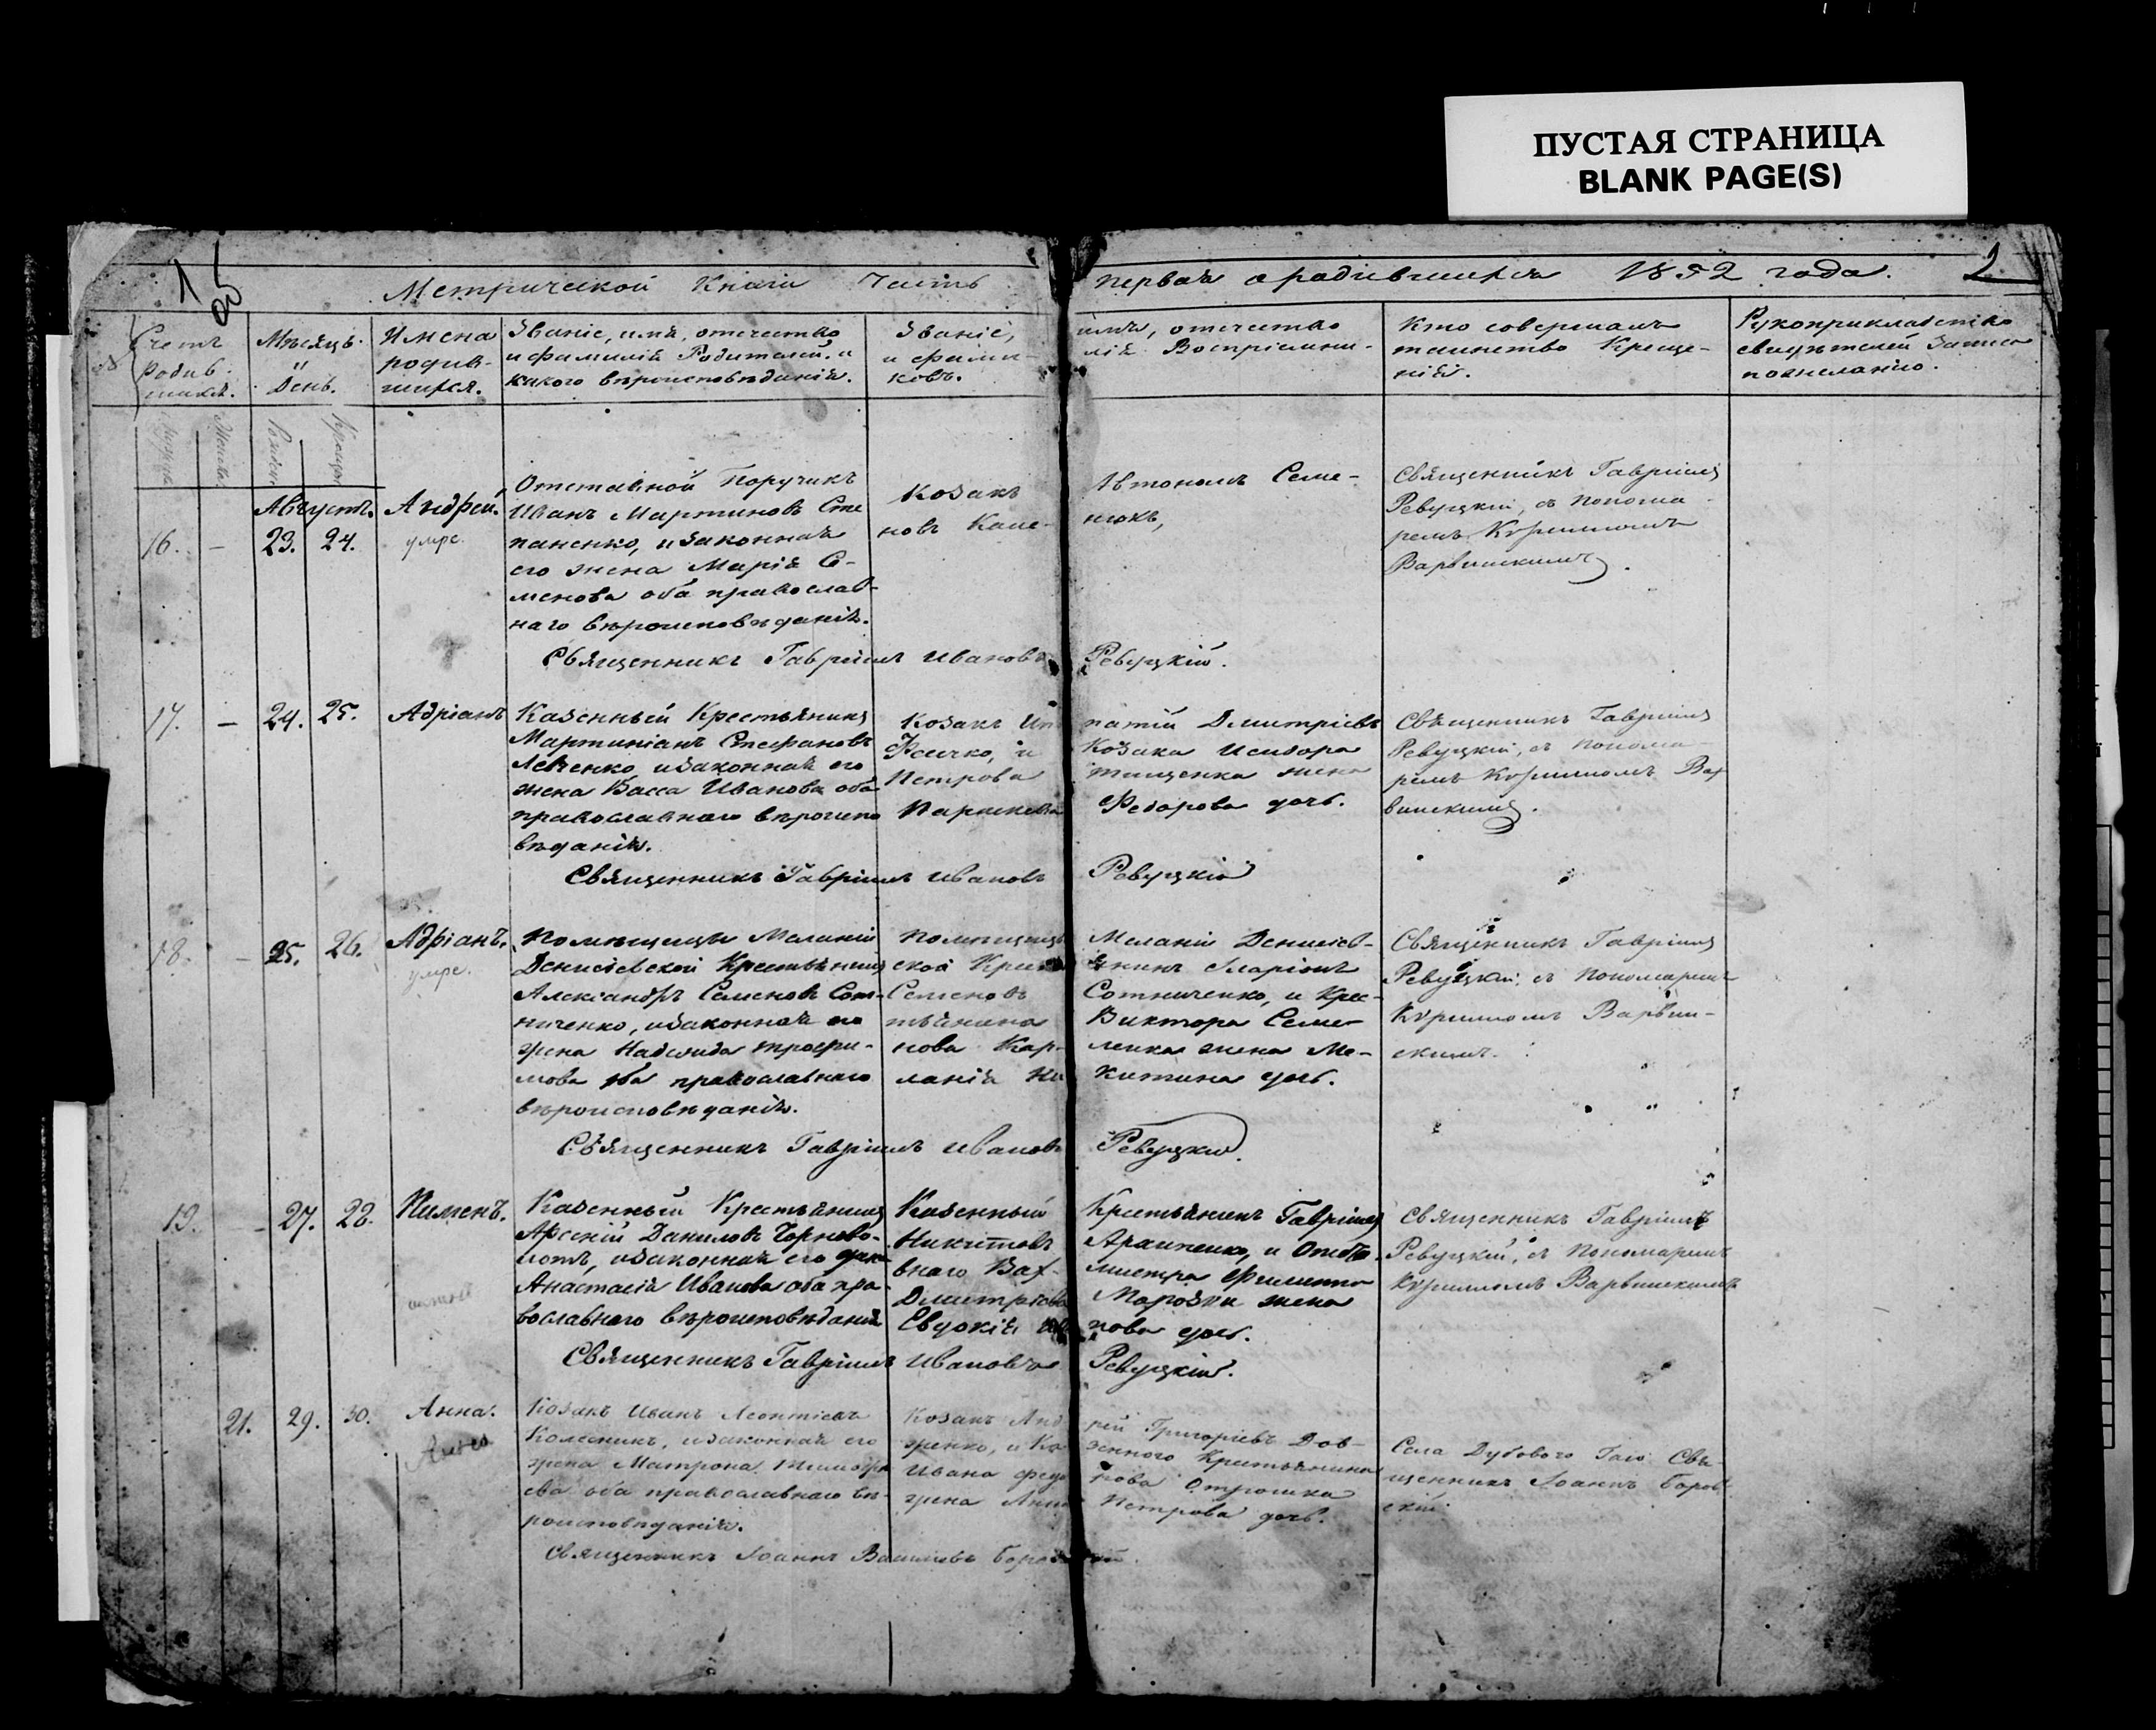 ПУСТАЯ СТРАНИЦА
BLANK PAGE(S)
1 об
2
Метрической Книги Часть первая о родившихся 1852 года.
Счетъ родив-шихся.
Мѣсяцъ и День.
Имена родив-шихся.
Званіе, имя, отечество
и фамилія Родителей, и
какого вѣроисповѣданія.
Званіе, имя, отечество
и фами-лія Воспріемни-
ковъ.
Кто совершалъ
таинство Креще-
нія.
Рукоприкладство
свидѣтелей записи
по желанію.
Августъ.
16. – 23. 24.
Андрей.
умре.
Отставной Поручикъ
Иванъ Мартиновъ Сте
паненко, и законная
его жена Марія Се-
менова оба православ-
наго вѣроисповѣданія.
Козакъ Автономъ Семе-
новъ нюкъ,
Священникъ Гавріилъ
Ревуцкій, съ понома-
ремъ Кѵрилломъ
Варвинскимъ.
Священникъ Гавріилъ Ивановъ Ревуцкій.
17. – 24. 25.
Адріанъ
Казенный Крестьянинъ
Мартиніанъ Стефановъ
Левченко и законная его
жена Васса Иванова оба
православнаго вѣроиспо
вѣданія.
Козакъ Ипатій Дмитріевъ
и Козака Исидора
Петрова жена
Федорова дочь.
Священникъ Гавріилъ
Ревуцкій, съ понома-
ремъ Кѵрилломъ Вар
винскимъ.
Священникъ Гавріилъ Ивановъ Ревуцкій
18. – 25. 26.
Адріанъ.
умре.
Помѣщицы Меланіи
Денисіевской Крестьянинъ
Александръ Семеновъ Сот-
ниченко, и законная его
жена Надежда Трофи-
мова оба православнаго
вѣроисповѣданія.
Помѣщицы Меланіи Денисіев-
ской Крестьянинъ Иларіонъ
Семеновъ Сотниченко, и Крес-
тьянина Виктора Семе-
нова жена Ме-
ланія Никитина дочь.
Священникъ Гавріилъ
Ревуцкій, съ пономаремъ
Кѵрилломъ Варвин-
скимъ.
Священникъ Гавріилъ Ивановъ Ревуцкій.
19. – 27. 28.
Пименъ.
Казенный Крестьянинъ
Арсеній Даниловъ Чорново-
лотъ, и законная его жена
Анастасія Иванова оба пра-
вославнаго вѣроисповѣданія
Казенный Крестьянинъ Гавріилъ
Никитовъ
Дмитріева Морозки жена
Евдокія дочь.
Священникъ Гавріилъ
Ревуцкій, съ Пономаремъ
Кѵрилломъ Варвинскимъ
Священникъ Гавріилъ Ивановъ Ревуцкій.
21. 29. 30.
Анна.
Козакъ Иванъ Леонтіевъ
Колесникъ, и законная его
жена Матрона Тимофѣ
ева оба православнаго вѣ-
роисповѣданія.
Козакъ Андрей Григоріевъ Дов-
женко, и Казенного Крестьянина
Ивана Федорова Отрошка
жена Анна Петрова дочь.
Села Дубового Гаю Свя-
щенникъ Іоаннъ Боров-
скій.
Священникъ Іоаннъ Василіевъ Боровскій.